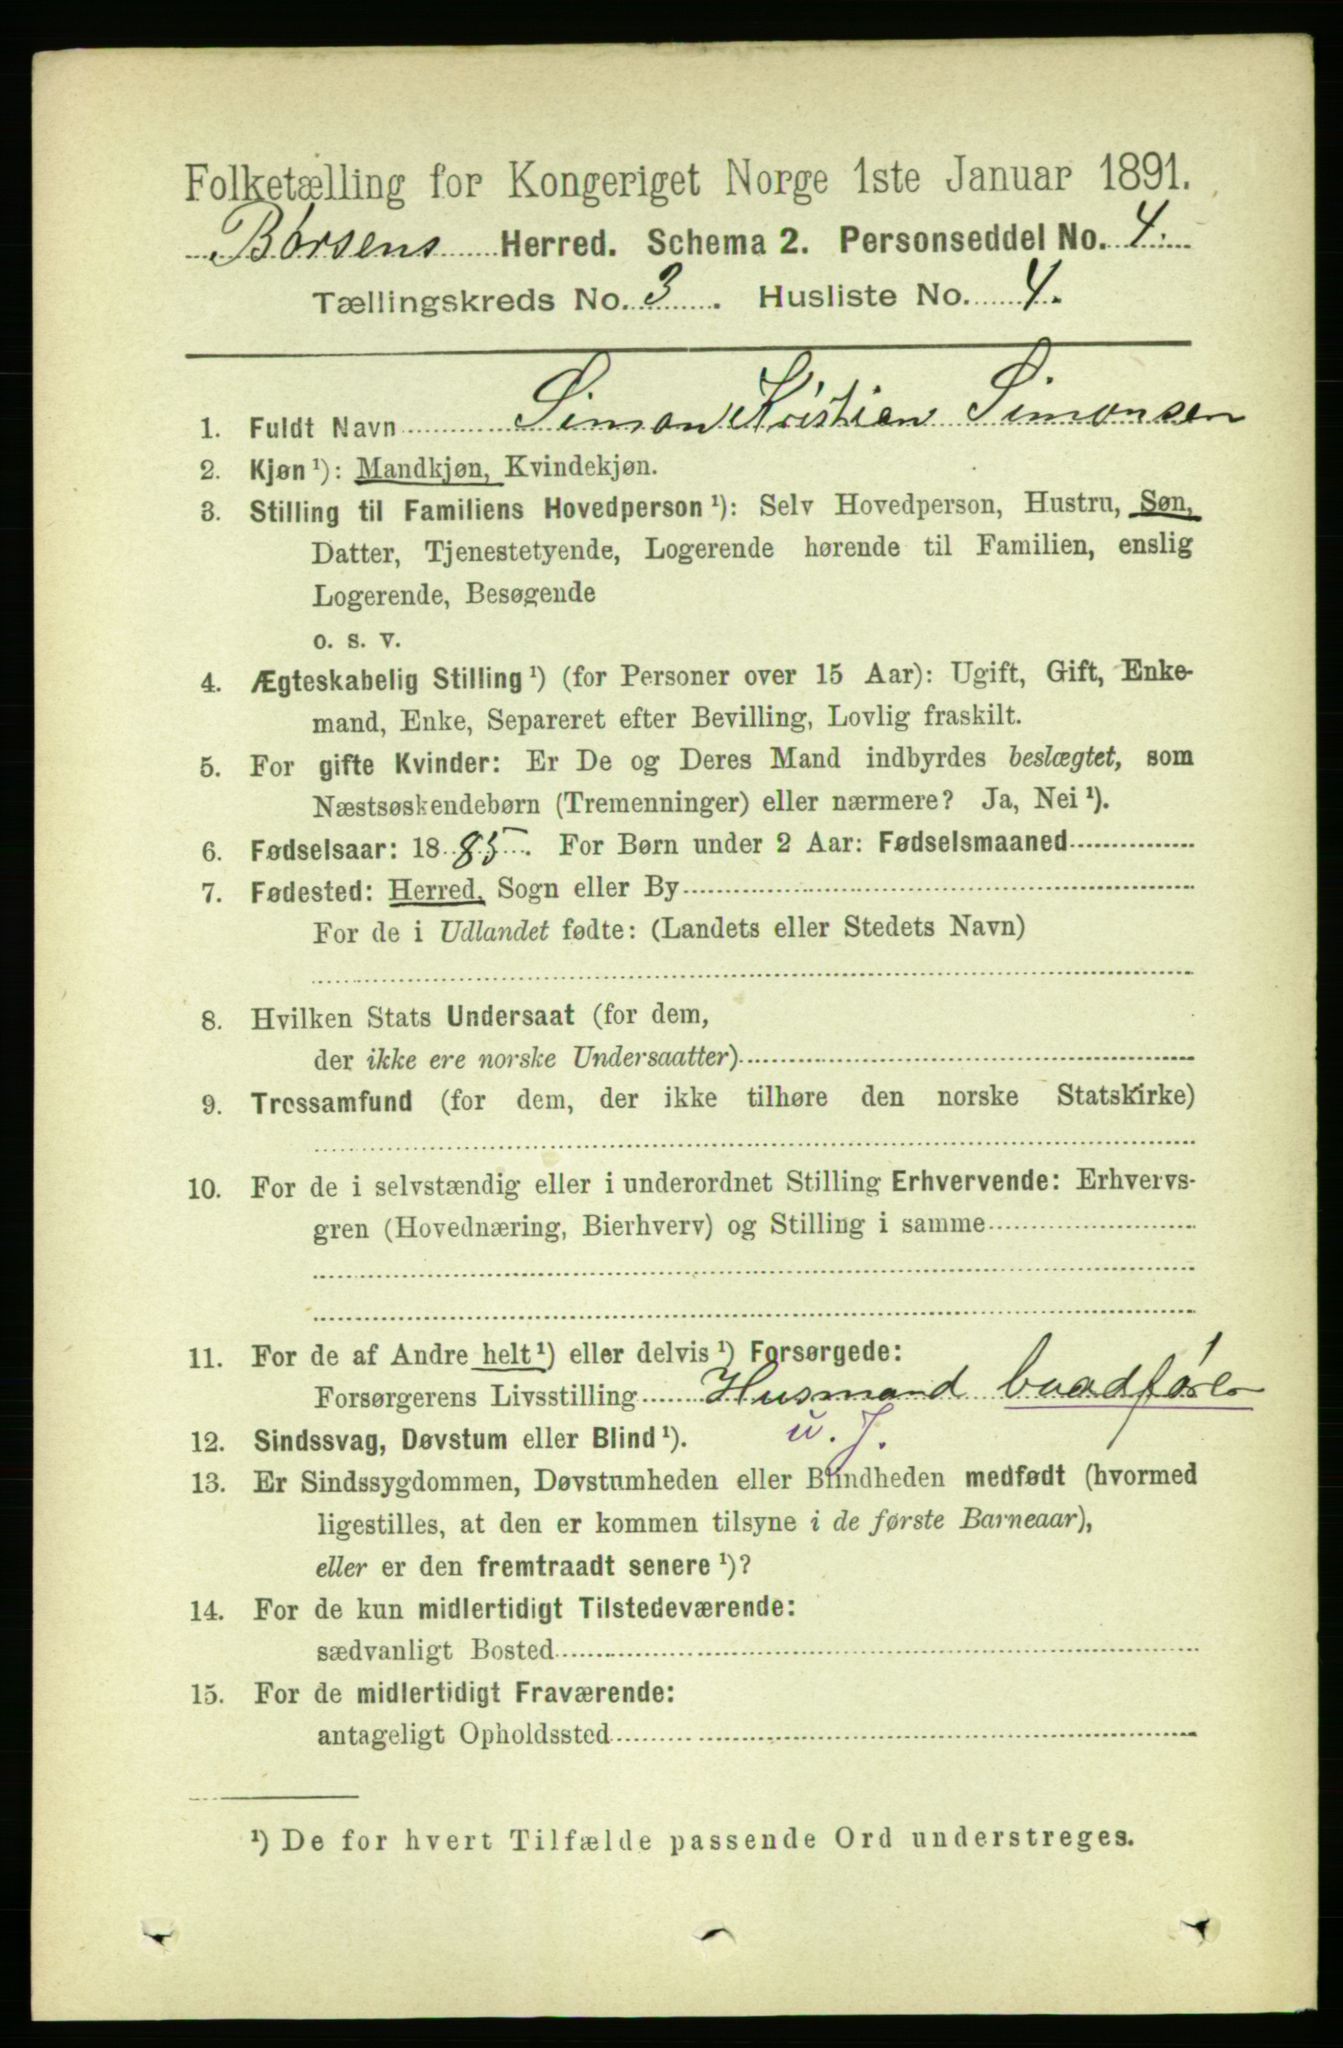 Folketælling for Kongeriget Norge 1ste Januar 1891.
Børsens Herred. Schema 2. Personseddel No. 4.
Tællingskreds No. 3. Husliste No. 4.
1. Fuldt Navn Simon Kristian Simonsen
2. Kjøn ¹): Mandkjøn, Kvindekjøn.
3. Stilling til Familiens Hovedperson ¹): Selv Hovedperson, Hustru, Søn,
Datter, Tjenestetyende, Logerende hørende til Familien, enslig
Logerende, Besøgende
o. s. v.
4. Ægteskabelig Stilling ¹) (for Personer over 15 Aar): Ugift, Gift, Enke-
mand, Enke, Separeret efter Bevilling, Lovlig fraskilt.
5. For gifte Kvinder: Er De og Deres Mand indbyrdes beslægtet, som
Næstsøskendebørn (Tremenninger) eller nærmere? Ja, Nei ¹).
6. Fødselsaar: 1885. For Børn under 2 Aar: Fødselsmaaned
7. Fødested: Herred, Sogn eller By
For de i Udlandet fødte: (Landets eller Stedets Navn)
8. Hvilken Stats Undersaat (for dem,
der ikke ere norske Undersaatter)
9. Trossamfund (for dem, der ikke tilhøre den norske Statskirke)
10. For de i selvstændig eller i underordnet Stilling Erhvervende: Erhvervs-
gren (Hovednæring, Bierhverv) og Stilling i samme
11. For de af Andre helt ¹) eller delvis ¹) Forsørgede:
Forsørgerens Livsstilling Husmand baadfører
u. J.
12. Sindssvag, Døvstum eller Blind ¹).
13. Er Sindssygdommen, Døvstumheden eller Blindheden medfødt (hvormed
ligestilles, at den er kommen tilsyne i de første Barneaar),
eller er den fremtraadt senere ¹)?
14. For de kun midlertidigt Tilstedeværende:
sædvanligt Bosted
15. For de midlertidigt Fraværende:
antageligt Opholdssted
¹) De for hvert Tilfælde passende Ord understreges.